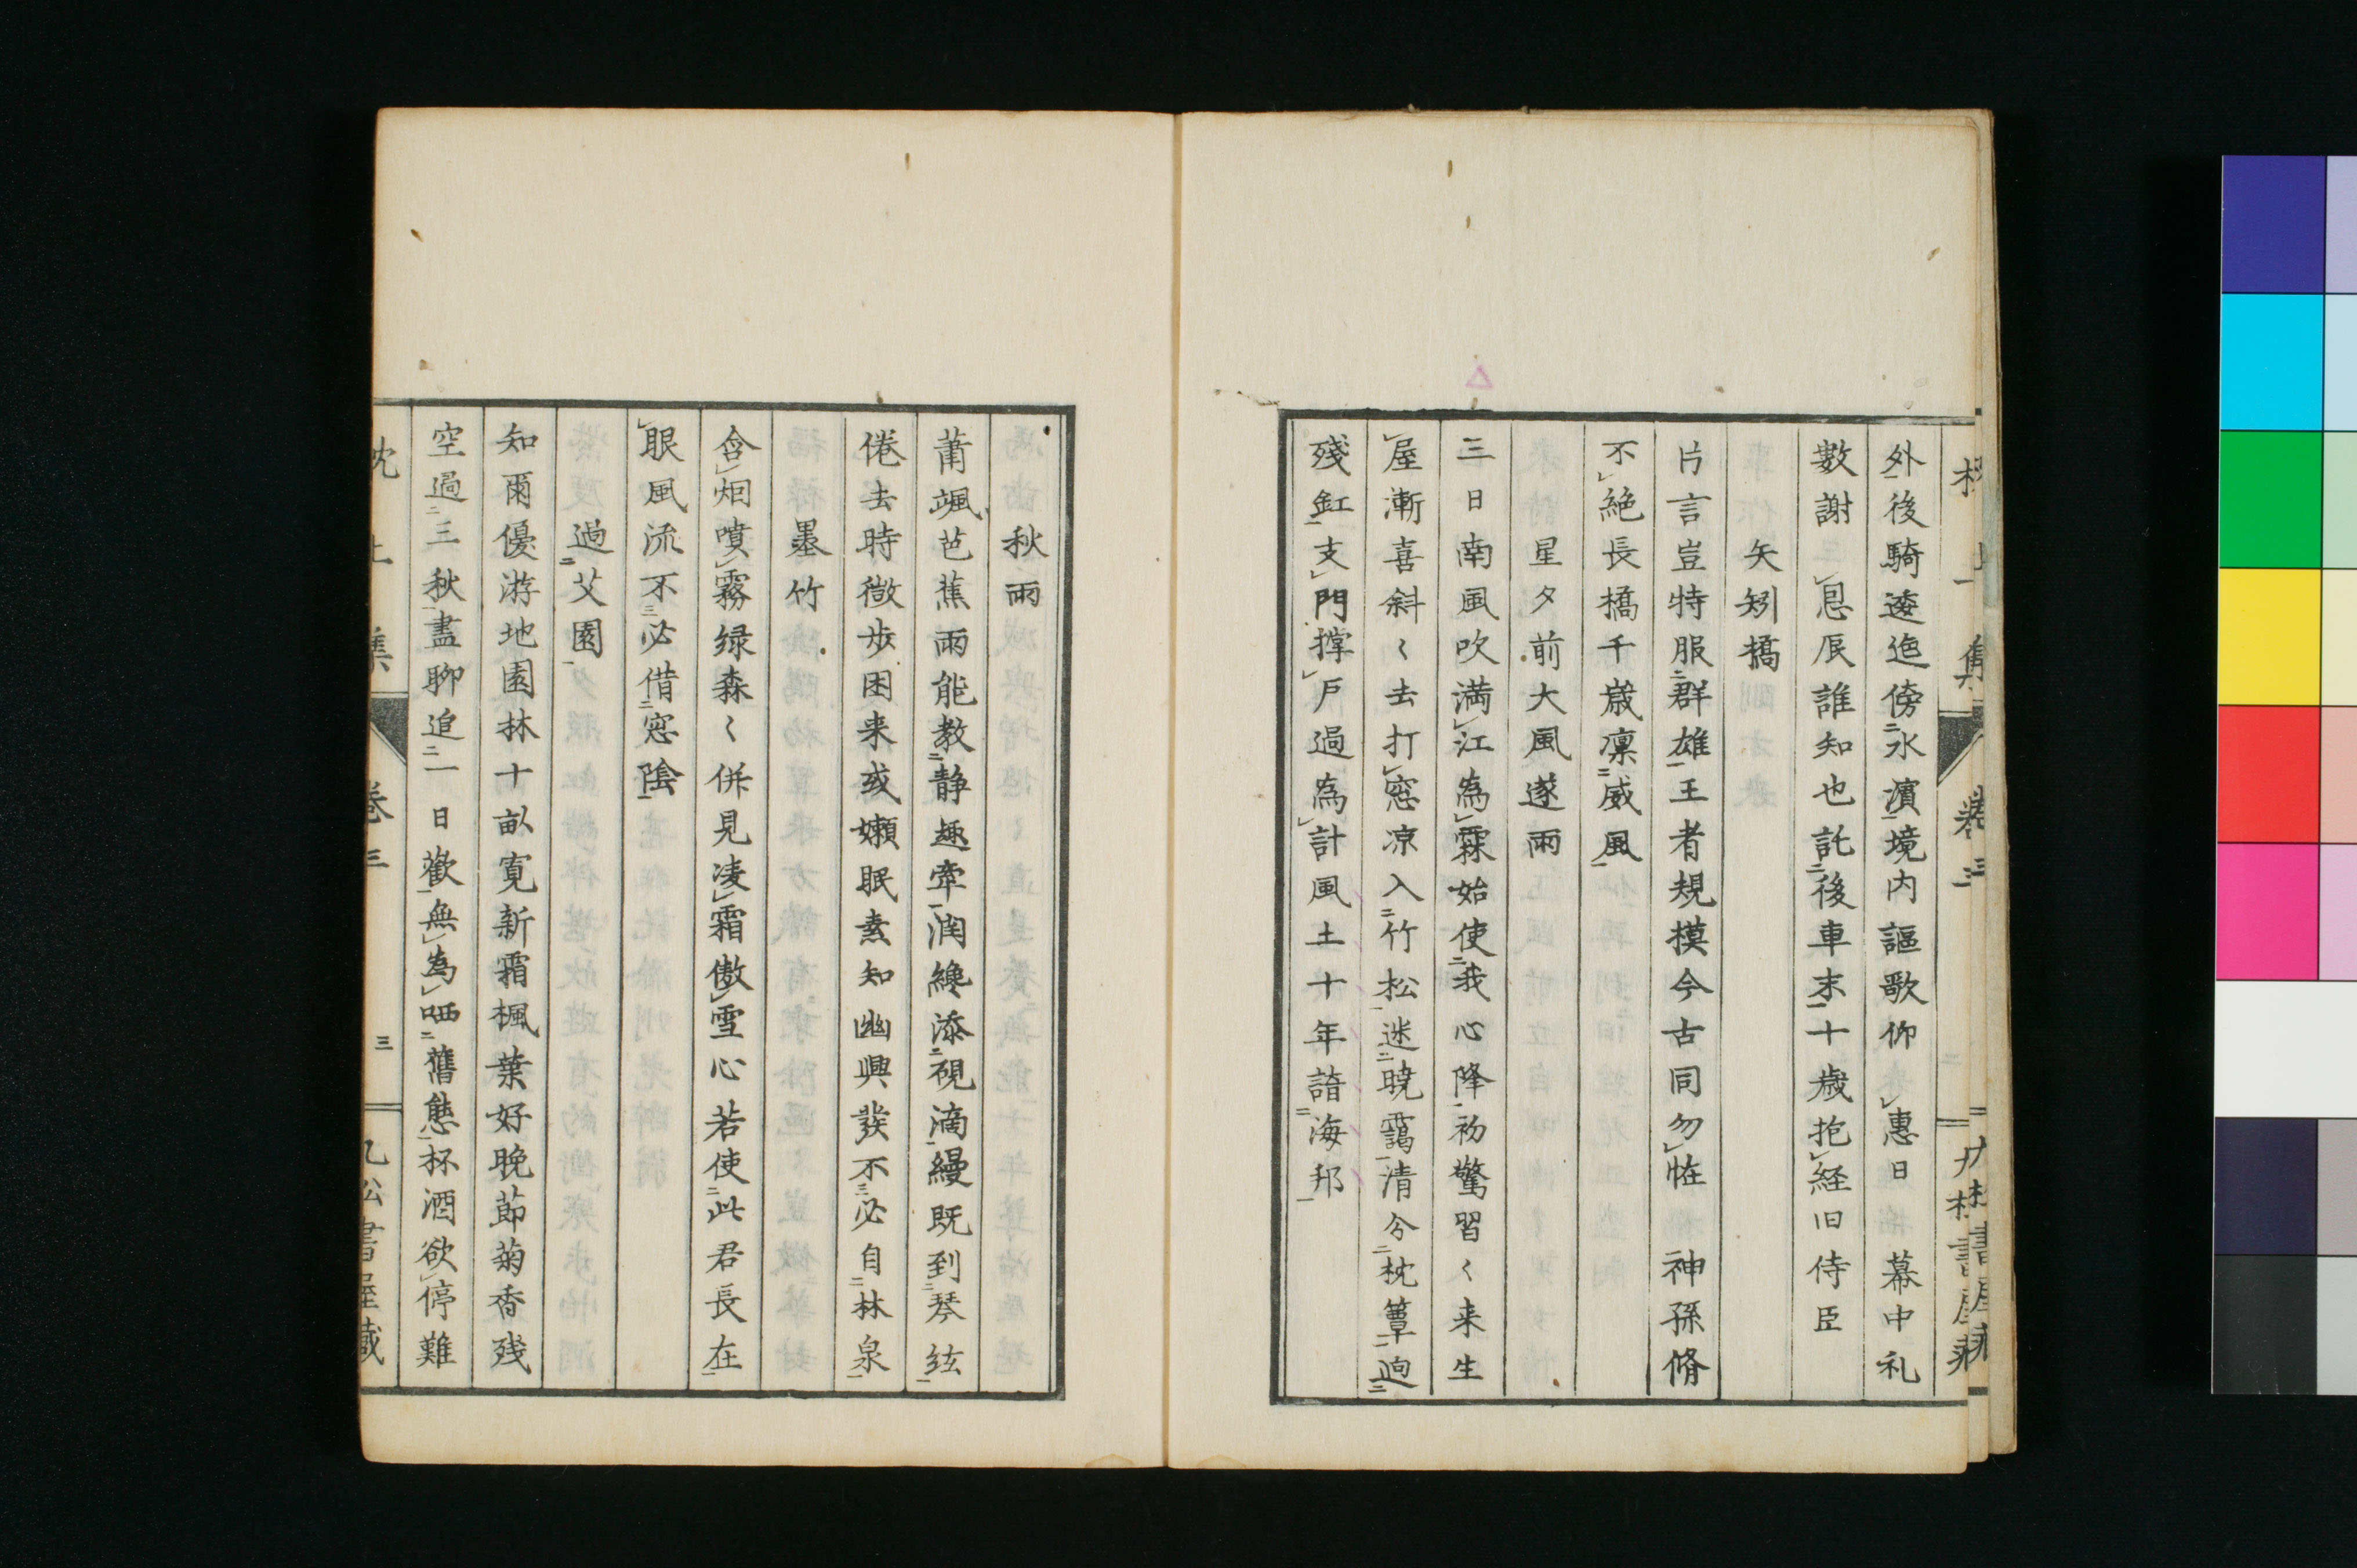 外後騎逶迤傍氷濱境内謳歌仰惠日 幕中礼
數謝恩辰誰知也託後車末十歳抱経旧侍臣
矢矧橋
片言豈特服群雄王者規模今古同勿怪 神孫脩
不絶長橋千歳凛威風
星夕前大風遂雨
三日南風吹満江為霖始使我心降初驚習〱来生
屋漸喜斜〱去打窓凉入竹松迷暁靄清分枕簟逈
残釭支門撑戸過為計風土十年諳海邦
秋雨
莆颯芭蕉雨能教静趣牽潤纔添硯滴緩既到琴絃
倦去時微歩困来或嬾眠素知幽興發不必自林泉
墨竹
含烟噴霧緑森〱併見凌霜傲雪心若使此君長在
眼風流不必借窓陰
過艾園
知爾優游地園林十畝寛新霜楓葉好晩節菊香残
空過三秋盡聊追一日歡無為哂舊態杯酒欲停難
枕上集 卷三 三 九松書屋藏